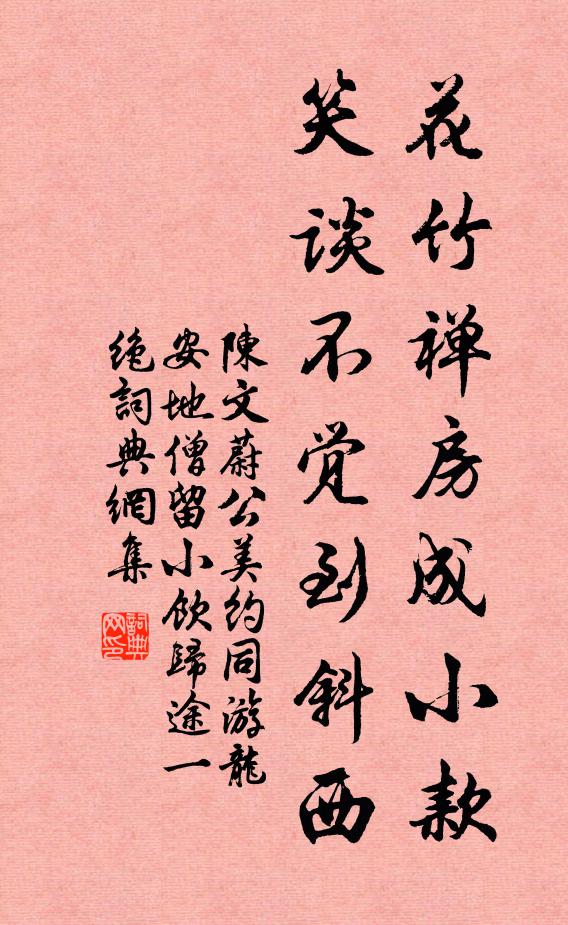 花竹禅房成小款
笑谈不觉到斜西
陳文蔚公美約同游龍
安地僧留小飲歸途一
絶詞典網集
詞典
网印